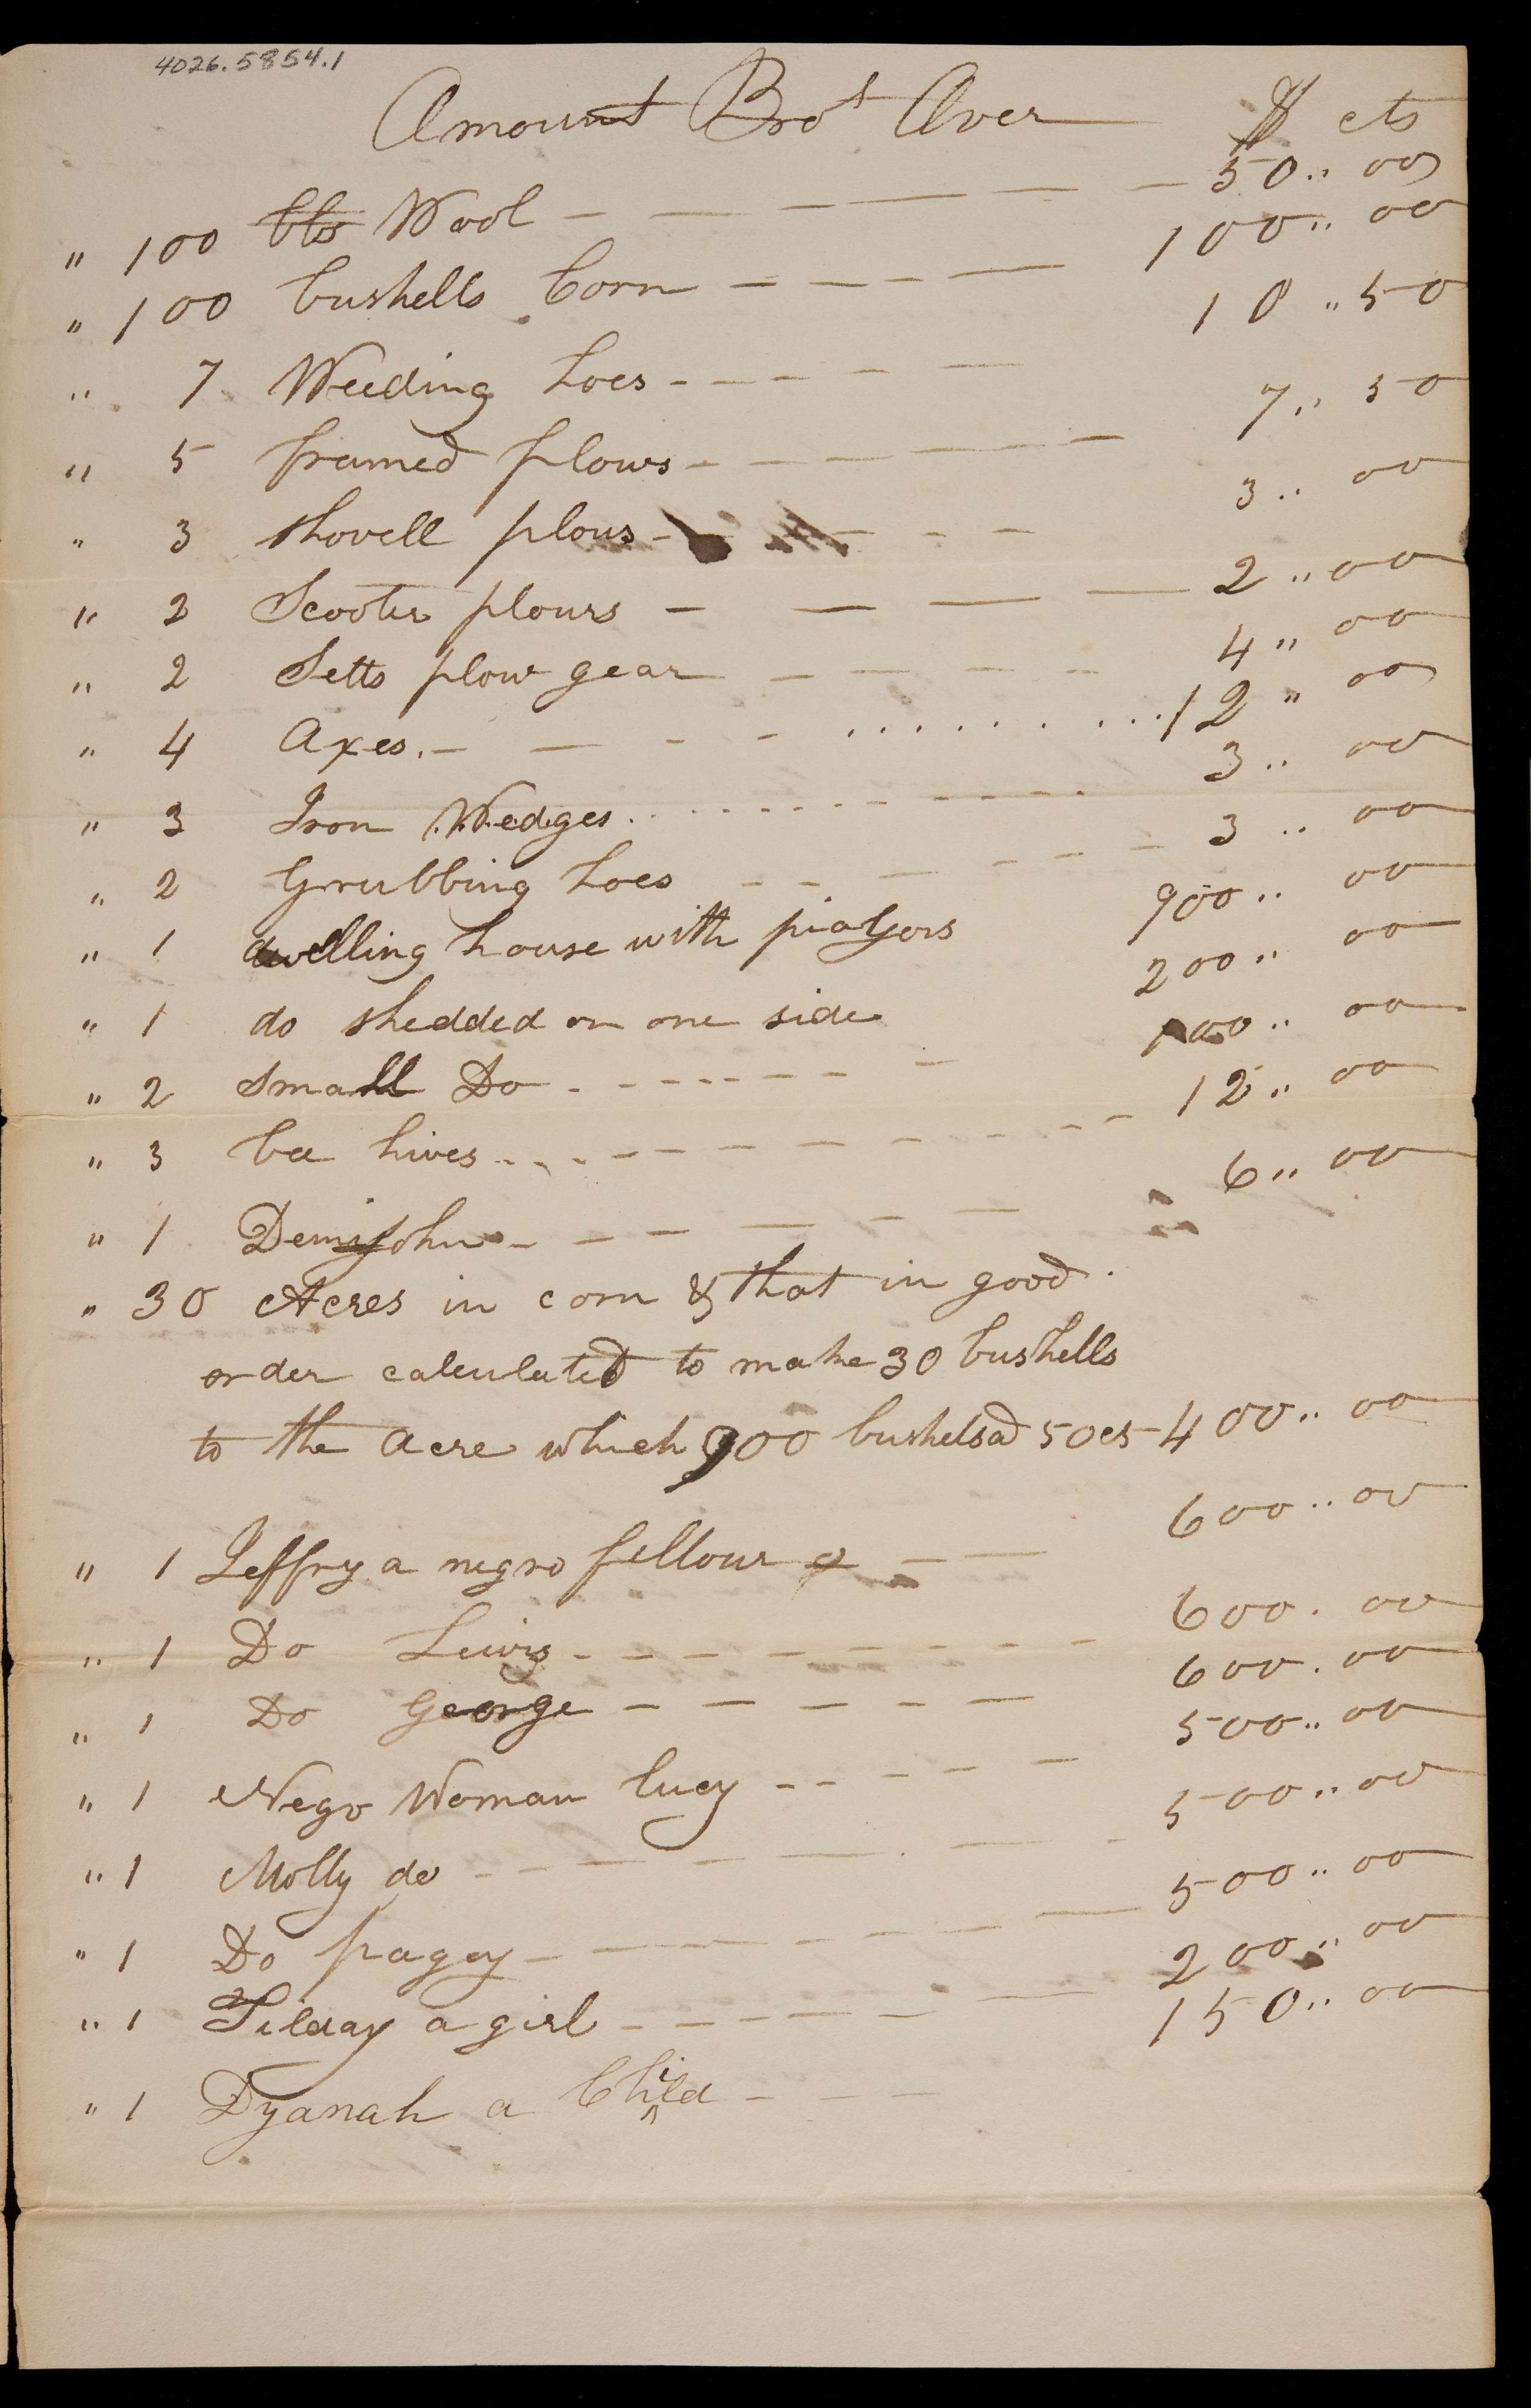 4026.5854.1
Amount Bro^t Over $ cts
" 100 lbs Wool - - - - - - 50.. 00
" 100 bushells Corn - - - - - 100.. 00
" 7 Weeding hoes - - - - - - 10 .. 50
" 5 framed plows - - - - - - 7.. 50
" 3 shovell plous - - - - - 3.. 00
" 2 Scooter plours - - - - - 2 .. 00
" 2 Setts plow gear - - - - 4 " 00
" 4 Axes. - - - - . . . . . . . . . . 12 " 00
" 3 Iron Wedges . . . . . - - - - 3.. 00
" 2 Grubbing hoes - - - - - - 3 .. 00
" 1 dwelling house with piazors 900.. 00
" 1 do shedded on one side 200.. 00
" 2 small Do - - - - - - - 100.. 00
" 3 bee hives - - - - - - - - 12.. 00
" 1 Demijohn - - - - - - - 6.. 00
" 30 Acres in corn & that in good
order calculated to make 30 bushells
to the acre which 900 bushels ad 50 cs - 400.. 00
" 1 Jeffry a negro fellour - - 600.. 00
" 1 Do Lewis - - - - - - - 600. 00
" 1 Do George - - - - - 600. 00
" 1 Nego Woman lucy - - - - - 500.. 00
" 1 Molly do - - - - - - - 500.. 00
" 1 Do pagey - - - - - - - 500.. 00
" 1 Silday a girl - - - - - - - 200.. 00
" 1 Dyanah a Child - - - 150.. 00